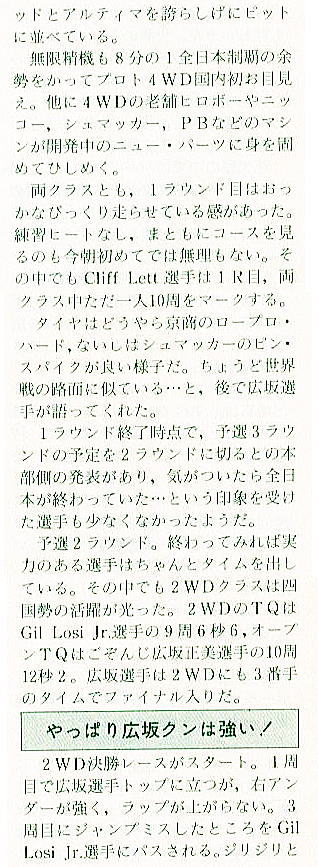 ッドとアルティマを誇らしげにピット
に並べている。
無限精機も8分の1全日本制覇の余
勢をかってプロト4WD国内初お目見
え。他に4WDの老舗ヒロボーやニッ
コー，シュマッカー，PBなどのマシ
ンが開発中のニュー・パーツに身を固
めてひしめく。
両クラスとも，1ラウンド目はおっ
かなびっくり走らせている感があった。
練習ヒートなし，まともにコースを見
るのも今朝初めてでは無理もない。そ
の中でもCliff Lett選手は1R目，両
クラス中ただ一人10周をマークする。
タイヤはどうやら京商のロープロ・
ハード，ないしはシュマッカーのピン・
スパイクが良い様子だ。ちょうど世界
戦の路面に似ている…と，後で広坂選
手が語ってくれた。
1ラウンド終了時点で，予選3ラウ
ンドの予定を2ラウンドに切るとの本
部側の発表があり，気がついたら全日
本が終わっていた…という印象を受け
た選手も少なくなかったようだ。
予選2ラウンド。終わってみれば実
力のある選手はちゃんとタイムを出し
ている。その中でも2WDクラスは四
国勢の活躍が光った。2WDのTQは
Gil Losi Jr.選手の9周6秒6，オープ
ンTQはごぞんじ広坂正美選手の10周
12秒2。広坂選手は2WDにも3番手
のタイムでファイナル入りだ。
やっぱり広坂クンは強い！
2WD決勝レースがスタート。1周
目で広坂選手トップに立つが，右アン
ダーが強く，ラップが上がらない。3
周目にジャンプミスしたところをGil
Losi Jr.選手にパスされる。ジリジリと